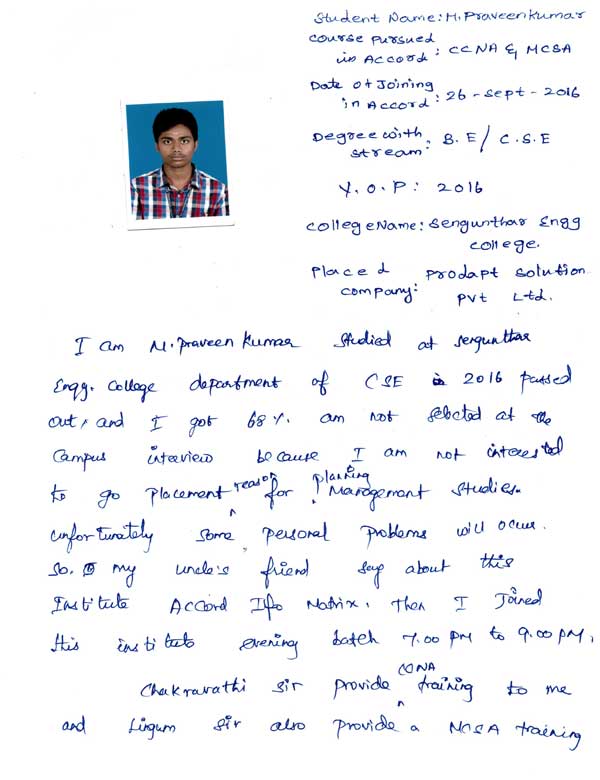 Student Name: M. Praveenkumar
Course Pursued
in Accord: CCNA & MCSA
Date of Joining
in Accord: 26-Sept-2016
Degree with
stream: B.E / C.S.E
Y.O.P: 2016
College Name: Sengunthar Engg
college.
Placed
company: Prodapt Solution
Pvt Ltd.
I am M. Praveen Kumar studied at sengunthar
Engg. College department of CSE in 2016 passed
out, and I got 68%. am not selected at the
Campus interview because I am not interested
to go placement reason for planning Management studies.
unfortunately some personal problems will occur.
So. my uncle's friend say about this
Institute Accord Ifo Matrix. Then I Joined
this institute evening batch 7.00 PM to 9.00 PM,
Chakravathi Sir provide CCNA training to me
and Lingum Sir also provide a MCSA training